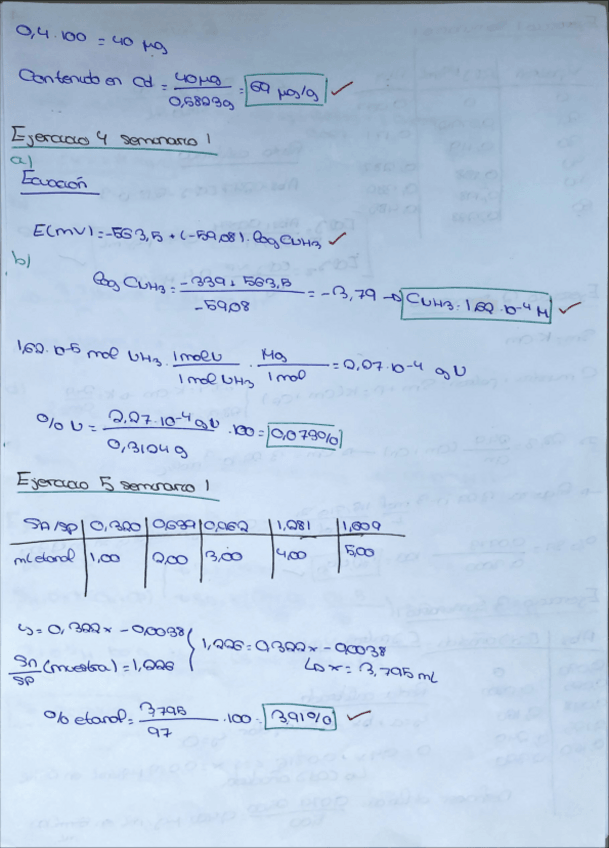 0,4 · 100 = 40 μg
Contenido en Cd = 40 μg / 0,5829 g = 69 μg/g ✓
Ejercicio 4 seminario 1
a)
Ecuación
E(mV) = -563,5 + (-59,08) · log CNH3 ✓
b)
log CNH3 = -339 + 563,5 / -59,08 = -3,79 → CNH3 = 1,62 · 10-4 M ✓
1,62 · 10-5 mol NH3 · 1 mol N / 1 mol NH3 · 14g / 1 mol = 2,27 · 10-4 g N
% N = 2,27 · 10-4 g N / 0,3104 g · 100 = 0,073%
Ejercicio 5 seminario 1
SA/SP 0,320 0,639 0,962 1,281 1,609
ml etanol 1,00 2,00 3,00 4,00 5,00
y = 0,322x - 0,0038
SA/SP (muestra) = 1,226
1,226 = 0,322x - 0,0038
↳ x = 3,795 ml
% etanol = 3,795 / 97 · 100 = 3,91% ✓